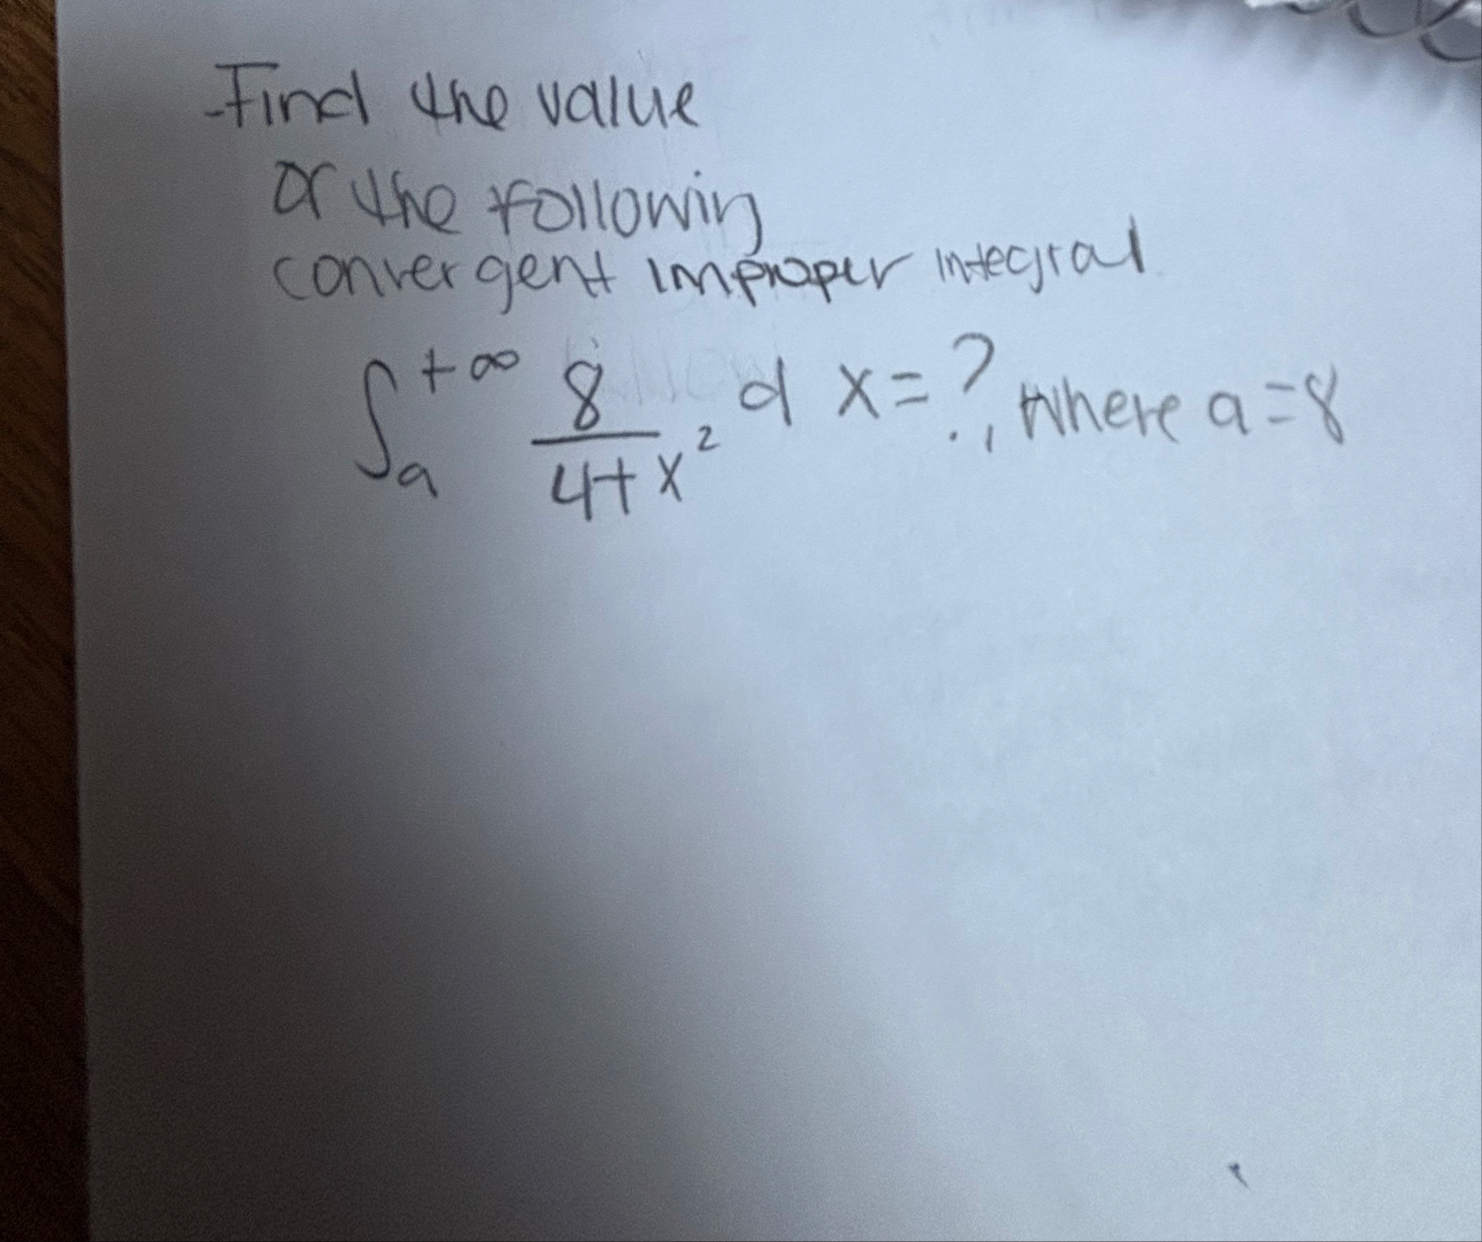 Find the value
or the following
convergent improper integral
∫ₐ^+∞ 8/4+x² d x = ?, where a = 8